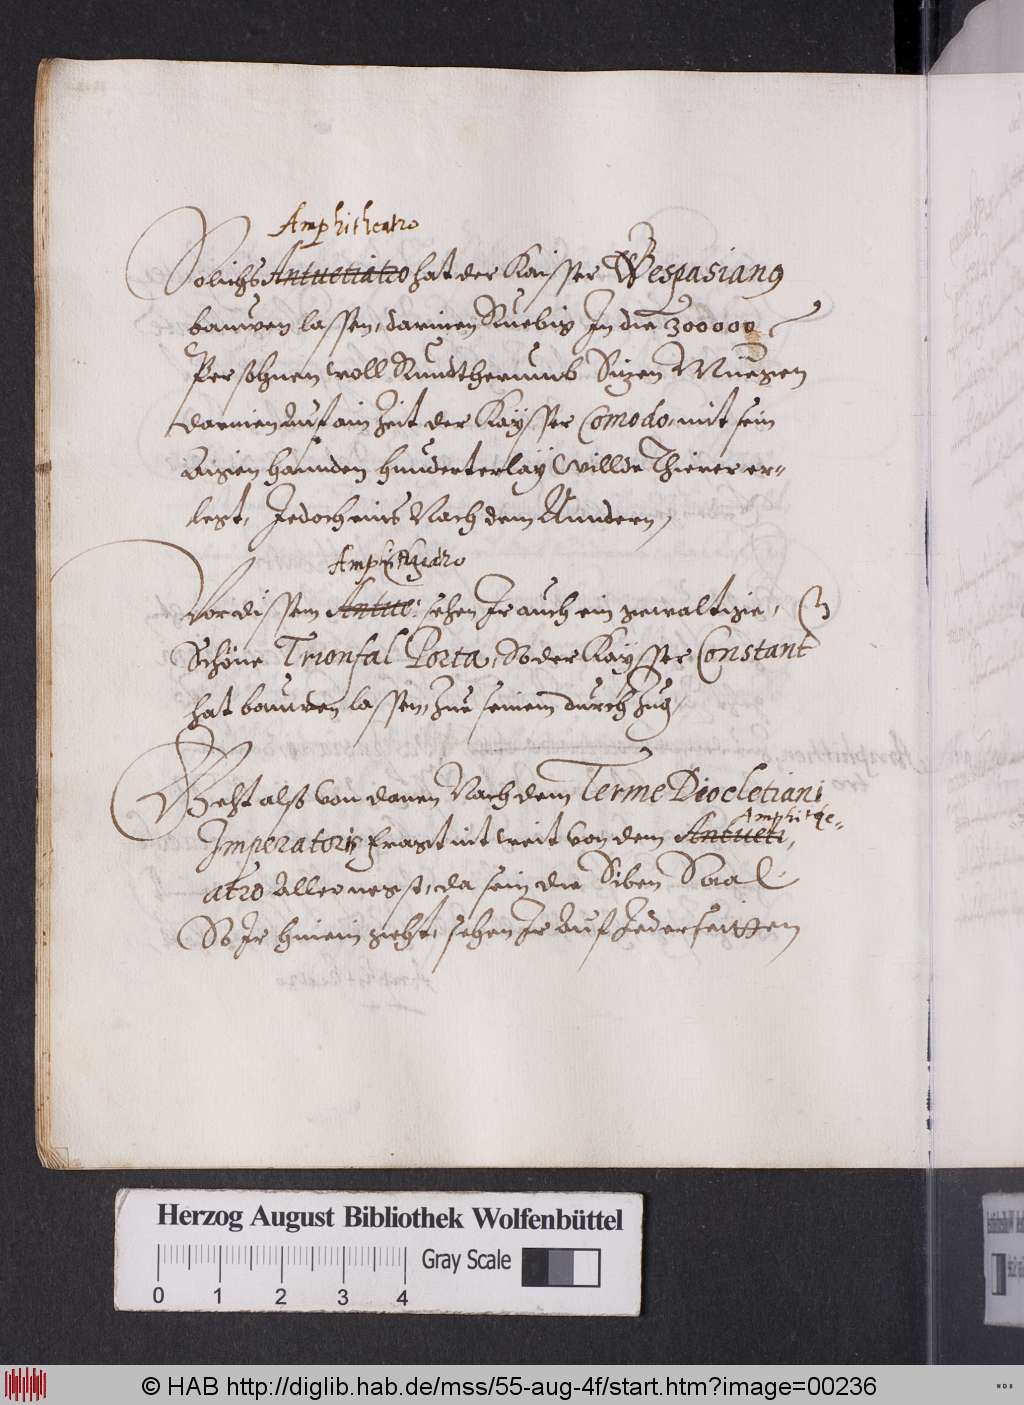 Amphitheatro
Solichs Antuetiatro hat der Kaisser Wespasianus
bauwen lassen, darinen Ruebig In die 300000
Persohnen woll Rundtherumb Sizen Muegen
darinen auf ain Zeit der Kaysser Comodo, mit sein
aigien hannden hunderterlay Willde Thierer er-
legt, Jedoch eins Nach dem Anndern,
Amphitheatro
Vor dissem Antue: sehen Ir auch ein gewaltigie,
Schöne Trionfal Porta, So der Kaysser Constant
hat bauwen lassen, Zue seinem durch Zug,
Geht alß von danen Nach dem Terme Diocletiani
Amphithe-
Imperatoris fragt nit weit von dem Antueti,
atro Aller negst, da sein die Siben Saal
So Ir hinein geht, sehen Ir auf Jeder seitten
Herzog August Bibliothek Wolfenbüttel
Gray Scale
0 1 2 3 4
© HAB http://diglib.hab.de/mss/55-aug-4f/start.htm?image=00236